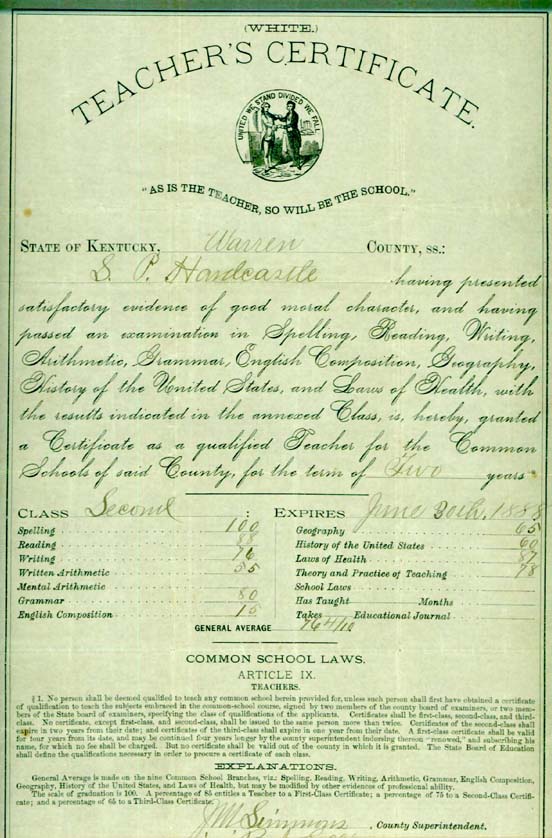 (WHITE.)
TEACHER'S CERTIFICATE.
UNITED WE STAND DIVIDED WE FALL
"AS IS THE TEACHER, SO WILL BE THE SCHOOL."
STATE OF KENTUCKY, Warren COUNTY, SS.:
S. P. Hardcastle having presented
satisfactory evidence of good moral character, and having
passed an examination in Spelling, Reading, Writing,
Arithmetic, Grammar, English Composition, Geography,
History of the United States, and Laws of Health, with
the results indicated in the annexed Class, is, hereby, granted
a Certificate as a qualified Teacher for the Common
Schools of said County, for the term of Two years
CLASS Second : EXPIRES June 30th, 1888
Spelling 100
Reading 88
Writing 76
Written Arithmetic 55
Mental Arithmetic
Grammar 80
English Composition 75
Geography 65
History of the United States 60
Laws of Health 87
Theory and Practice of Teaching 78
School Laws
Has Taught Months
Takes Educational Journal
GENERAL AVERAGE 76 4/10
COMMON SCHOOL LAWS.
ARTICLE IX.
TEACHERS.
§ 1. No person shall be deemed qualified to teach any common school herein provided for, unless such person shall first have obtained a certificate
of qualification to teach the subjects embraced in the common-school course, signed by two members of the county board of examiners, or two mem-
bers of the State board of examiners, specifying the class of qualifications of the applicants. Certificates shall be first-class, second-class, and third-
class. No certificate, except first-class, and second-class, shall be issued to the same person more than twice. Certificates of the second-class shall
expire in two years from their date; and certificates of the third-class shall expire in one year from their date. A first-class certificate shall be valid
for four years from its date, and may be continued four years longer by the county superintendent indorsing thereon "renewed," and subscribing his
name, for which no fee shall be charged. But no certificate shall be valid out of the county in which it is granted. The State Board of Education
shall define the qualifications necessary in order to procure a certificate of each class.
EXPLANATIONS.
General Average is made on the nine Common School Branches, viz.: Spelling, Reading, Writing, Arithmetic, Grammar, English Composition,
Geography, History of the United States, and Laws of Health, but may be modified by other evidences of professional ability.
The scale of graduation is 100. A percentage of 85 entitles a Teacher to a First-Class Certificate; a percentage of 75 to a Second-Class Certifi-
cate; and a percentage of 65 to a Third-Class Certificate.
County Superintendent.